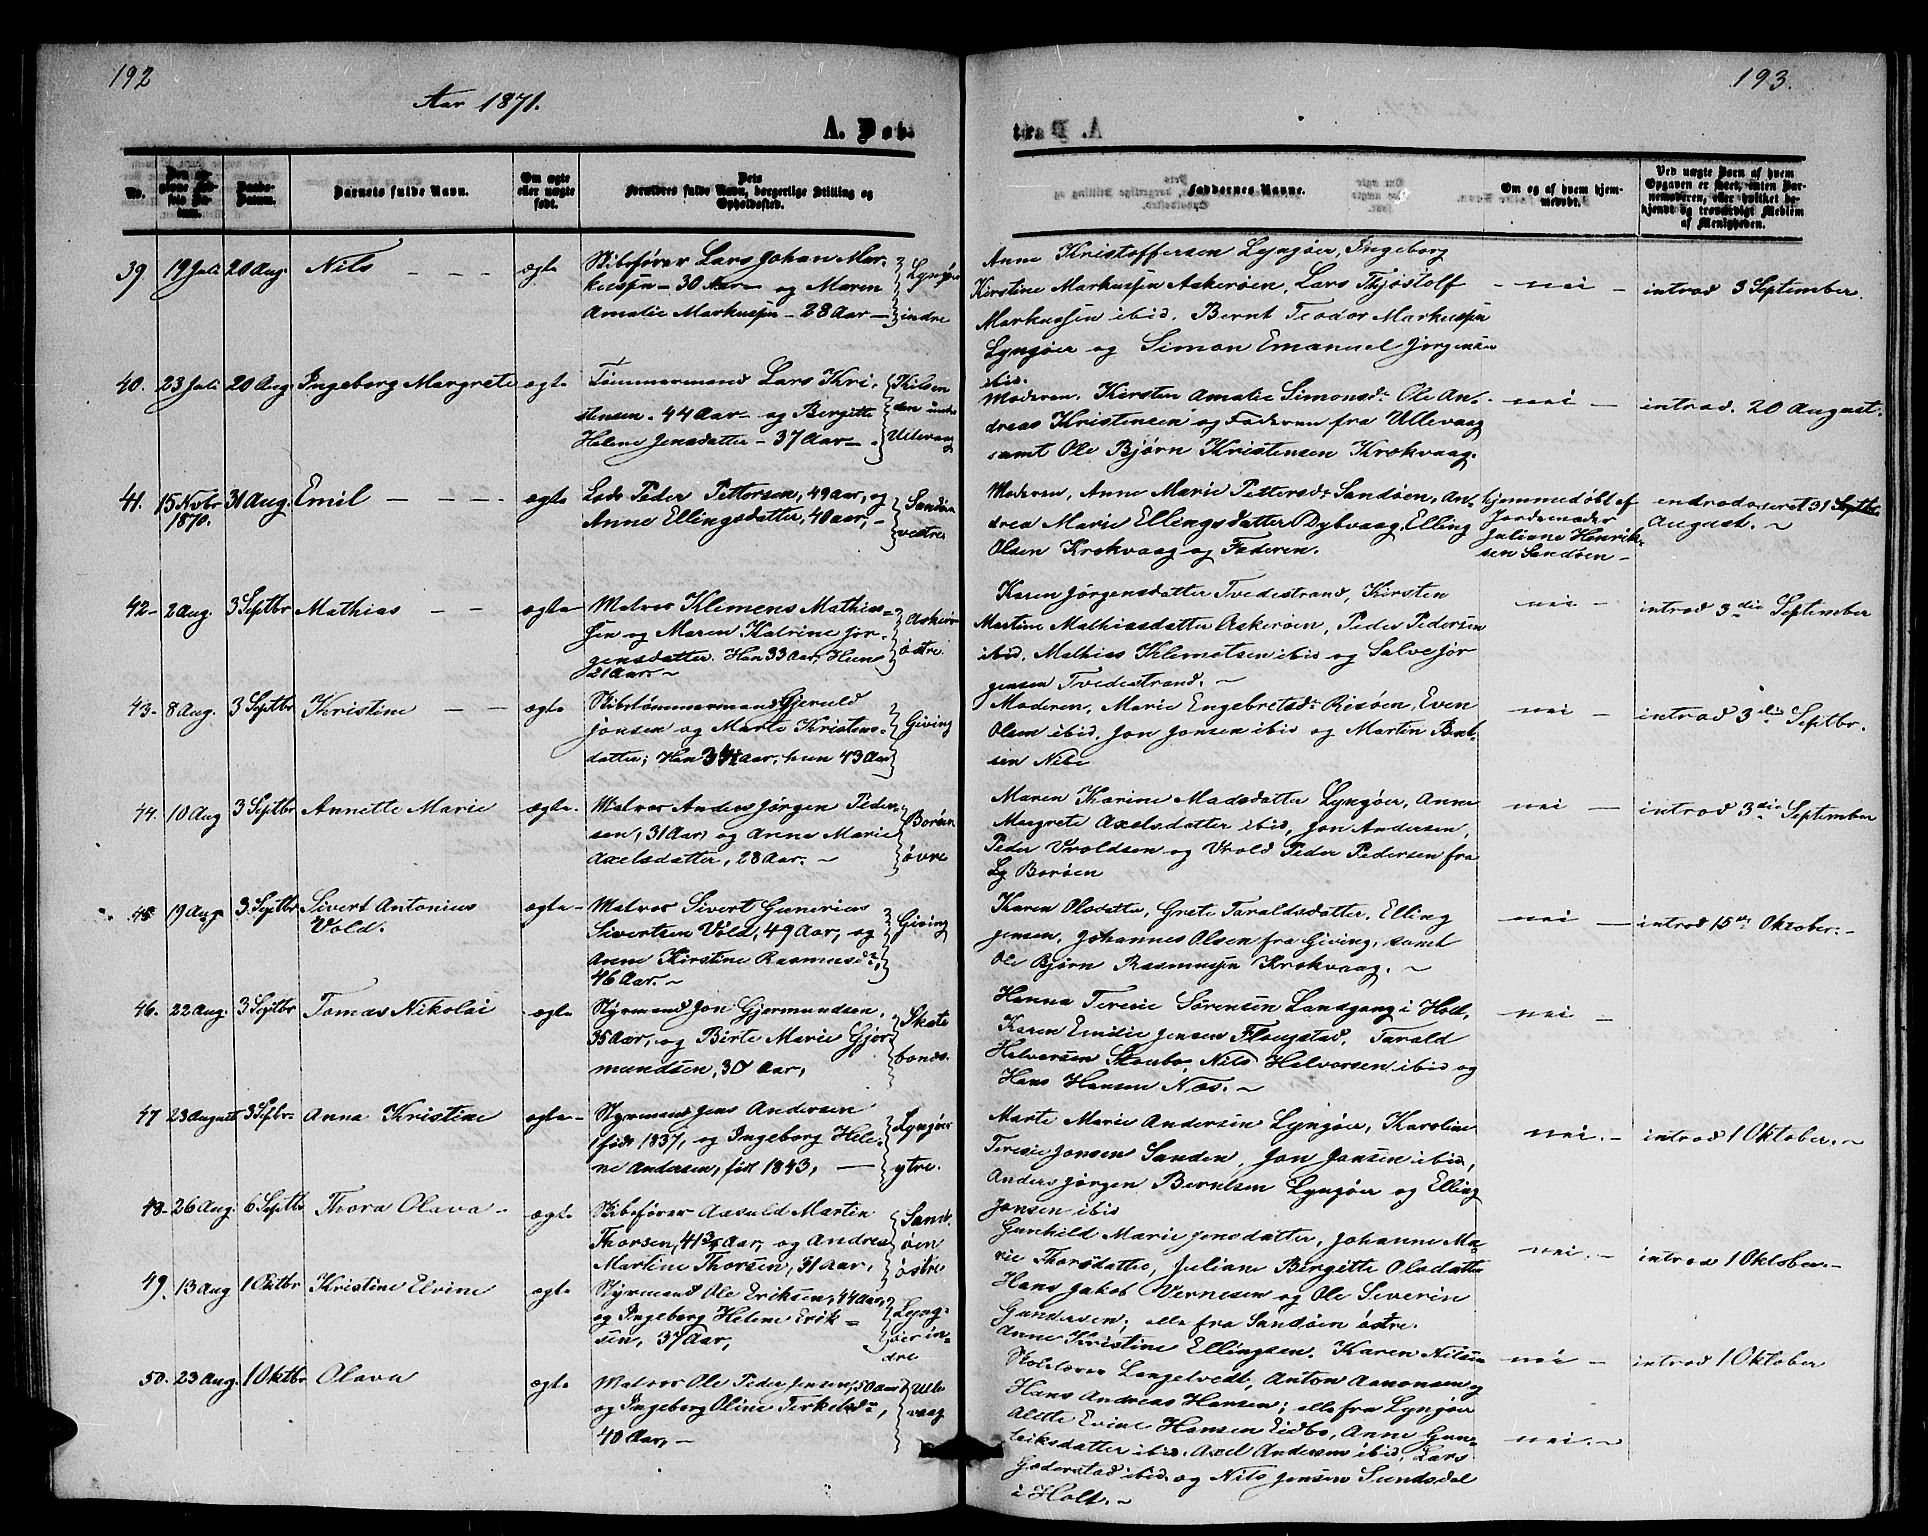 192
Aar 1871.
A. Døb-
No.
Barnets fulde Navn.
Om ægte eller uægte født.
Forældres fulde Navn, borgerlige Stilling og Opholdssted.
39 19 Juli 20 Aug. Nils — — — ægte
Skibsfører Lars Johan Mar-
kussen – 30 Aar og Maren
Amalie Markussen – 28 Aar –
Lyngør
indre
40. 23 Juli 20 Aug. Ingeborg Margrete ægte
Tømmermand Lars Kri-
stensen. 44 Aar og Bergitte
Helene Jensdatter – 37 Aar –.
41. 15 Novbr 1870. 31 Aug. Emil — — — ægte
Lods Peder Pettersen, 49 aar, og
Anne Ellingsdatter, 40 aar, –
Sandøen
vestre
42– 2 Aug. 3 Septbr Mathias — — ægte
Matros Klemens Mathias-
sen og Maren Katrine Jør-
gensdatter. Han 33 Aar, Hun
21 Aar. ~
Askerøen
østre
43– 8 Aug. 3 Septbr Kristine — — ægte
Skibstømmermand Gjeruld
Jonsen og Marte Kristens-
datter; Han Aar, hun 43 Aar
Giving
44. 10 Aug 3 Septbr Annette Marie ægte.
Matros Anders Jørgen Peder-
sen, 31 Aar, og Anne Marie
Axelsdatter, 28 Aar. ~
Borøen
øvre
45 19 Aug. 3. Septbr Sivert Antonius ægte–
Vold.
Matros Sivert Gunerius
Sivertsen Vold, 49 Aar, og
Anne Kirstine Rasmusdr,
46 Aar. ~
Giving
46. 22 Aug. 3 Septbr Tomas Nikolai ægte
Styrmand Jon Gjermundsen,
35 Aar, og Birte Marie Gjer-
mundsen, 30 Aar,
47 23 August 3 Septbr– Anna Kristine ægte–
Styrmand Jens Andersen
født 1837, og Ingeborg Hele-
ne Andersen, født 1843, —
Lyngør
ytre.
48– 26 Aug. 6 Septbr Thora Olava – ægte
Skibsfører Aasuld Martin
Thorsen, 41¾ Aar, og Andrea
Martine Thorsen, 31 Aar,
Sand-
øen
østre
49. 13 Aug 1 Oktbr Kristine Elvine ægte
Styrmand Ole Eriksen, 44 Aar,
og Ingeborg Helene Erik-
sen, 37 Aar,
Lyng-
øer in-
dre
50. 23 Aug. 1 Oktbr Olava ægte
Matros Ole Peder Jensen, 50 aar
og Ingeborg Oline Terkelsdr,
40 Aar, –
193.
Faddernes Navne.
Om og af hvem hjemmedøbt.
Ved uægte Børn af hvem Opgaven er skeet, enten Barnemoderen, eller hvilket bekjendt og troværdigt Medlem af Menigheden.
Anne Kristoffersen Lyngøer, Ingeborg
Kirstine Markussen Askerøen, Lars Thjøstolf
Markussen ibid, Bernt Teodor Markussen
Lyngøer og Simon Emanuel Jørgensen
ibid.
– nei – introd 3 September.
Moderen, Kirsten Amalie Simonsdr Ole An-
dreas Kristensen og Faderen fra Ullevaag
samt Ole Bjørn Kristensen Krokvaag.
– nei – introd. 20 August.
Moderen, Anne Marie Pettersdr Sandøen, An-
drea Marie Ellingsdatter Dybvaag, Elling
Olsen Krokvaag og Faderen.
hjemmedøbt af
Jordemoder
Juliane Henrik-
sen Sandøen –
31 Septbr
August. ~
Karen Jørgensdatter Tvedestrand, Kirsten
Martine Mathiasdatter Askerøen, Peder Pedersen
ibid, Mathias Klemetsen ibid og Salve Jør
gensen Tvedestrand. ~
nei – introd 3die September
Moderen, Marie Engebretsdr Risøen, Even
Olsen ibid, Jon Jonsen ibid og Martin
sen
nei – introd 3die Septbr.
Maren Karine Madsdatter Lyngøer, Anne
Margrete Axelsdatter ibid, Jon Andersen,
Peder Vroldsen og Vrold Peder Pedersen fra
Borøen
nei – introd 3die September
Karen Olsdatter, Grete Taraldsdatter, Elling
Jensen, Johannes Olsen fra Giving, samt
Ole Bjørn Rasmussen Krokvaag. ~
nei — introd 15de Oktober.–
Hanna Teresie Sørensen Landgang i Holt,
Karen Emilie Jensen Flougstad, Tarald
Halvorsen Skoubo, Nils Halvorsen ibid og
Hans Hansen Næs. ~
nei –
Marte Marie Andersen Lyngøer, Karoline
Teresie Jonsen Sanden, Jon Jonsen ibid,
Anders Jørgen Berntsen Lyngøer og Elling
Jonsen ibid
nei. – introd 1 Oktober. ~
Gunhild Marie Jensdatter, Johanne Ma-
rie Thorsdatter, Juliane Bergitte Olsdatter
Hans Jakob Vernesen og Ole Severin
Gundersen; alle fra Sandøen østre.
nei. – introd 1 Oktober. –
Anne Kristine Ellingsen. Karen Nilsen
Skolelærer Langelvedt, Anton Aanonsen og
Hans Andreas Hansen; alle fra Lyngøer
nei – introd 1 Oktober
Alette Evine Hansen Eidbo, Anne Gun-
leiksdatter ibid. Axel Andersen ibid, Lars
Goderstad ibid. og Nils Jensen Sundsdal
i Holt. ~
nei. ~